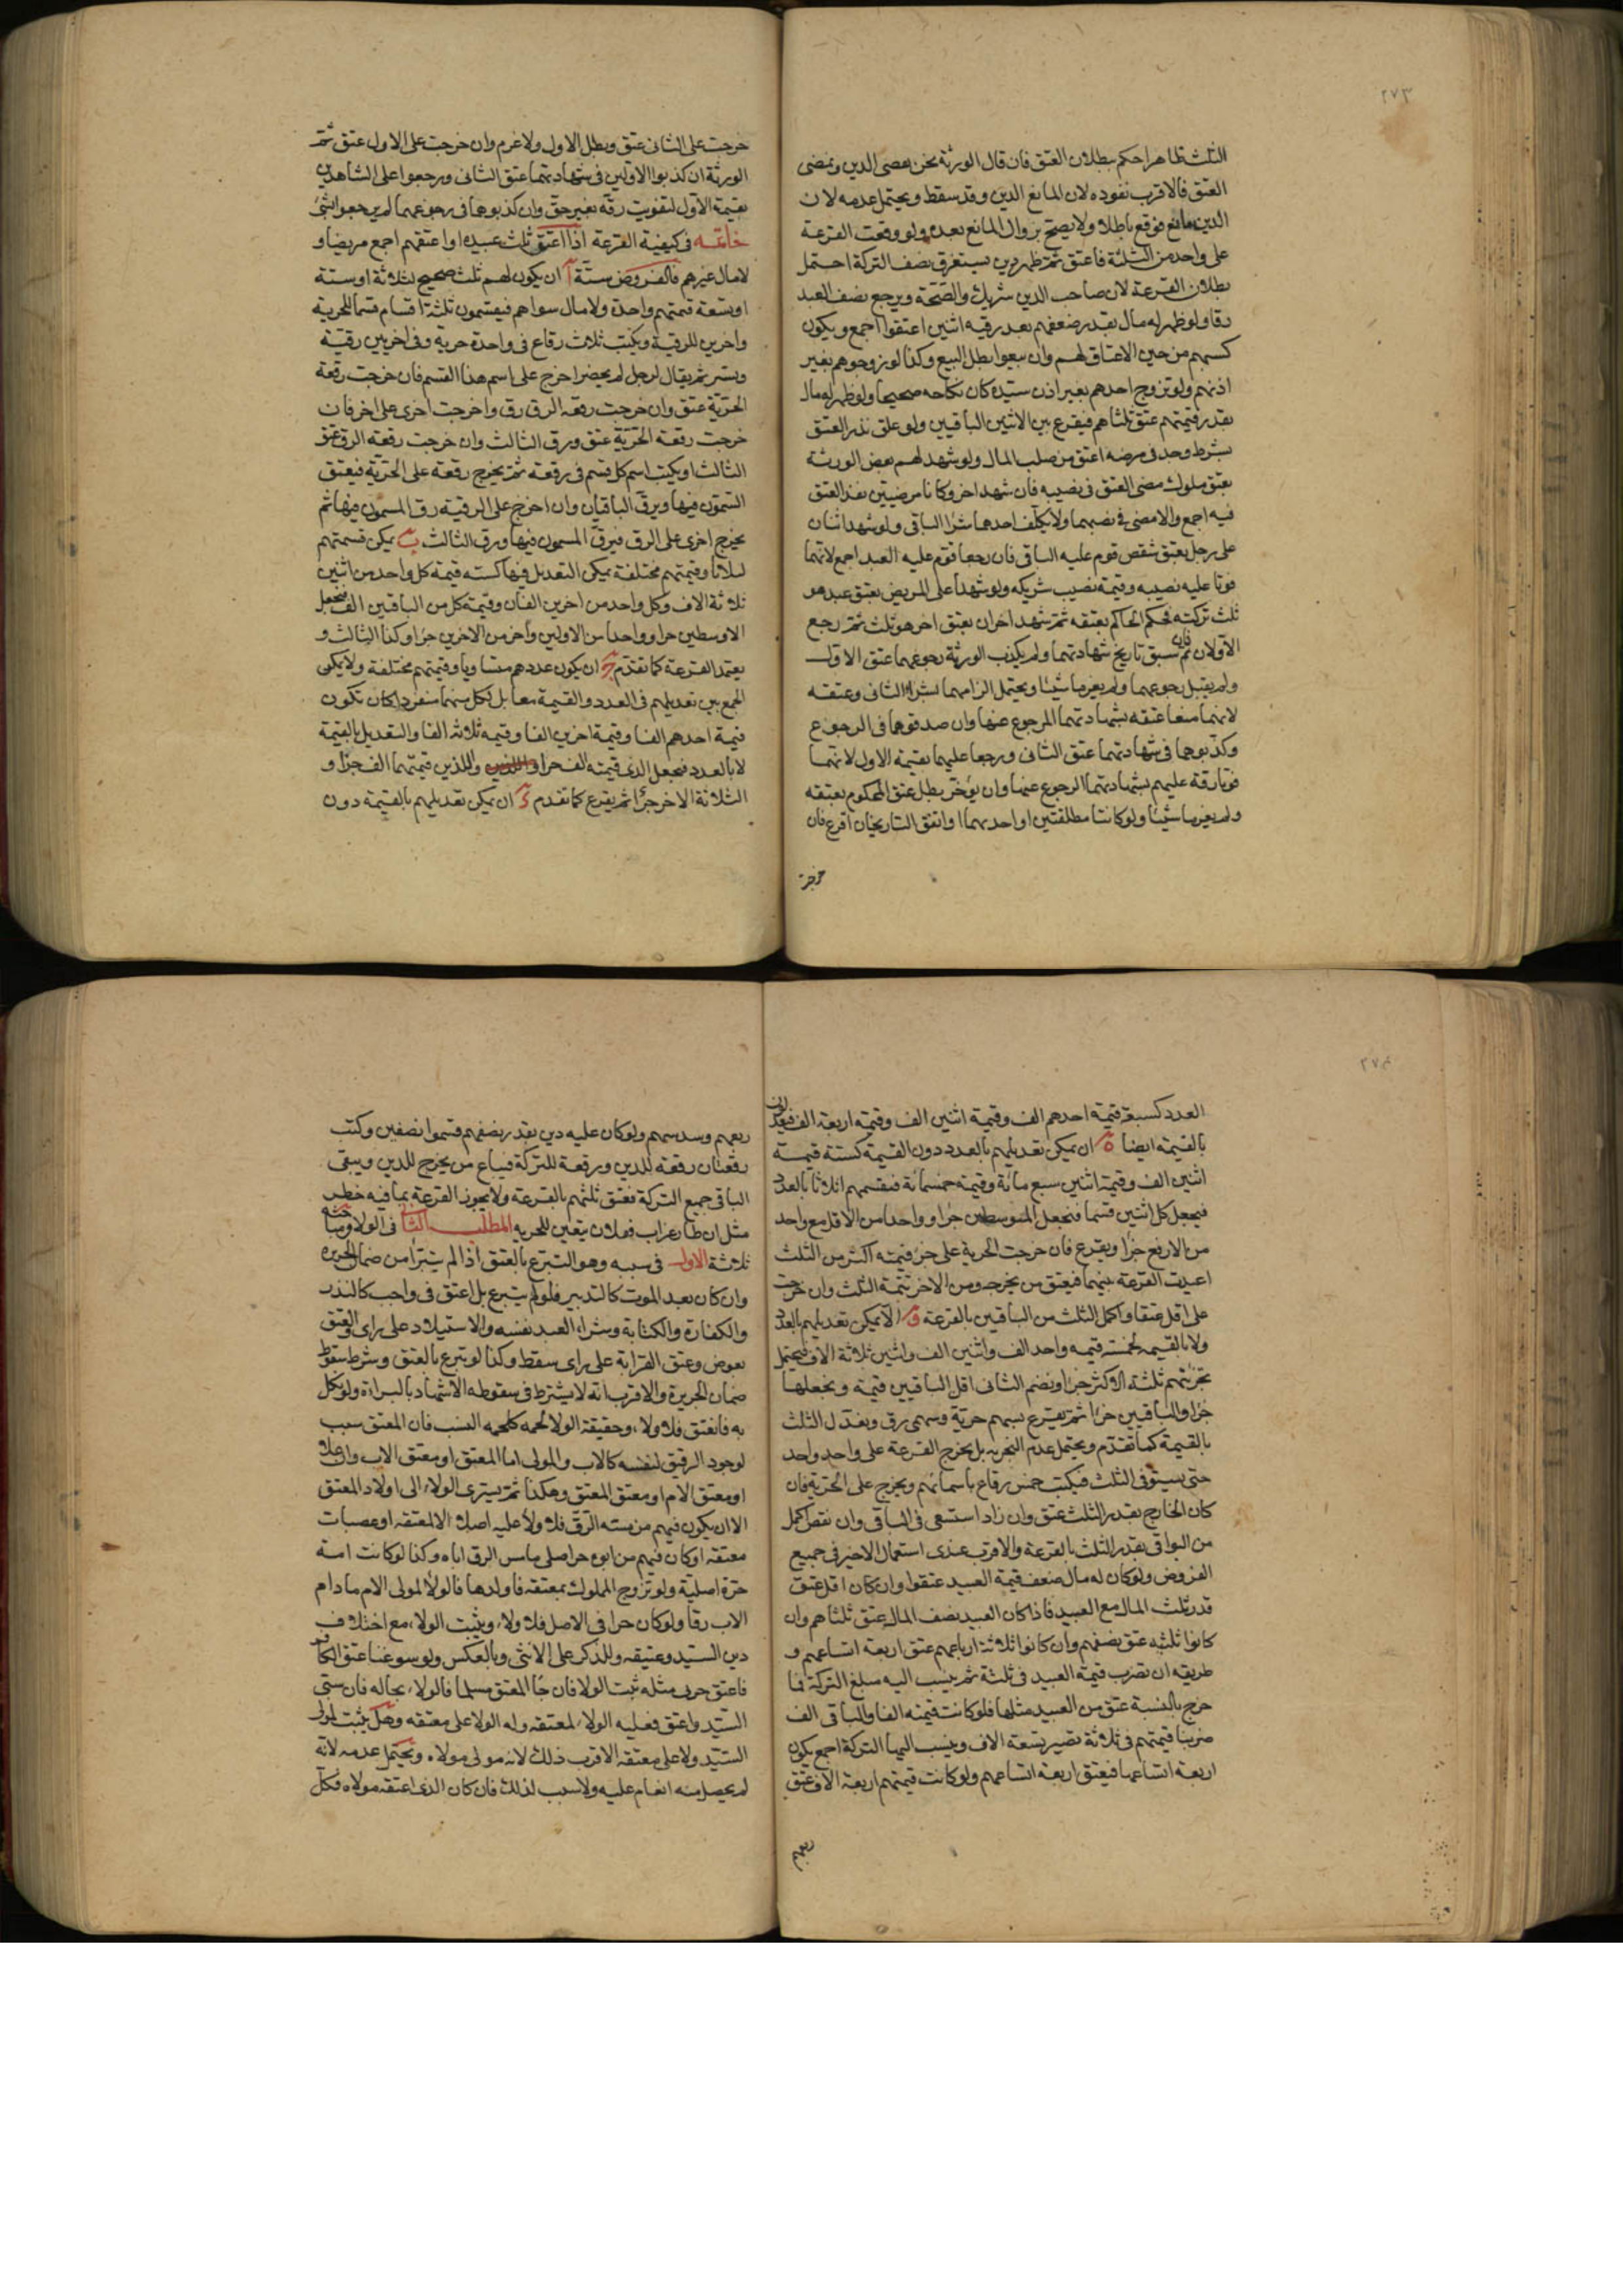 ٢٧٣
الثلث ظاهرا حكم ببطلان العتق فان قال الورثة نحن نقضى الدين ونمضى
العتق فالاقرب نفوذه لان المانع الدين وقد سقط ويحتمل عدمه لان
الدين مانع فوقع باطلا ولا يصح بزوال المانع بعده ولو وقعت القرعة
على واحد من الثلثة فاعتق ثم ظهر دين يستغرق نصف التركة احتمل
بطلان القرعة لان صاحب الدين شريك والصحة ويرجع نصف العبد
رقا ولو ظهر له مال بقدر ضعفهم بعد رقية اثنين اعتقوا اجمع ويكون
كسبهم من حين الاعتاق لهم وان بيعوا بطل البيع وكذا لو زوجوهم بغير
اذنهم ولو تزوج احدهم بغير اذن سيده كان نكاحه صحيحا ولو ظهر له مال
بقدر قيمتهم عتق ثلثاهم فيقرع بين الاثنين الباقيين ولو علق نذر العتق
بشرط وجد فى مرضه اعتق من صلب المال ولو شهد لهم بعض الورثة
بعتق مملوك مضى العتق فى نصيبه فان شهد اخر وكانا مرضيين نفذ العتق
فيه اجمع والا مضى فى نصيبهما ولا يكلف احدهما شرا الباقى ولو شهد اثنان
على رجل بعتق شقص قوم عليه الباقى فان رجعا قوم عليه العبد اجمع لانهما
فوتا عليه نصيبه وقيمة نصيب شريكه ولو شهدا على المريض بعتق عبد هو
ثلث تركته فحكم الحاكم بعتقه ثم شهد اخران بعتق اخر هو ثلث ثم رجع
الاولان فان سبق تاريخ شهادتهما ولم يكذب الورثة رجوعهما عتق الاول
ولم يقبل رجوعهما ولم يغرما شيئا ويحتمل الزامهما بشراء الثانى وعتقه
لانهما منعا عتقه بشهادتهما المرجوع عنها وان صدقوهما فى الرجوع
وكذبوهما فى شهادتهما عتق الثانى ورجعا عليهما بقيمة الاول لانهما
فوتا رقه عليهم بشهادتهما المرجوع عنها وان يؤخر بطل عتق المحكوم بعتقه
ولم يغرما شيئا ولو كانتا مطلقتين او احديهما او اتفق التاريخان اقرع فان
خرجت
خرجت على الثانى عتق وبطل الاول ولا غرم وان خرجت على الاول عتق ثم
الورثة ان كذبوا الاولين فى شهادتهما عتق الثانى ورجعوا على الشاهدين
بقيمة الاول لتفويت رقه بغير حق وان كذبوهما فى رجوعهما لم يرجعوا بشئ
خاتمة فى كيفية القرعة اذا اعتق ثلث عبيده او اعتقهم اجمع مريضا و
لا مال غيرهم فالفروض ستة آ ان يكون لهم ثلث صحيح كثلاثة او ستة
او تسعة قيمتهم واحدة ولا مال سواهم فيقسمون ثلثة اقسام قسما للحرية
واخرين للرقية ويكتب ثلاث رقاع فى واحدة حرية وفى اخريين رقية
ويستر ثم يقال لرجل لم يحضر اخرج على اسم هذا القسم فان خرجت رقعة
الحرية عتق وان خرجت رقعة الرق رق واخرجت اخرى على اخر فان
خرجت رقعة الحرية عتق ورق الثالث وان خرجت رقعة الرق عتق
الثالث او يكتب اسم كل قسم فى رقعة ثم يخرج رقعة على الحرية فيعتق
المسمون فيها ويرق الباقيان وان اخرج على الرقية رق المسمون فيها ثم
يخرج اخرى على الرق فيرق المسمون فيها ورق الثالث ب يمكن قسمتهم
اثلاثا وقيمتهم مختلفة يمكن التعديل فيها كستة قيمة كل واحد من اثنين
ثلاثة الاف وكل واحد من اخرين الفان وقيمة كل من الباقين الف فنجعل
الاوسطين جزا وواحدا من الاولين واخر من الاخرين جزا وكذا الثالث و
يعتمد القرعة كما تقدم ج ان يكون عددهم متساويا وقيمتهم مختلفة ولا يمكن
الجمع بين تعديلهم فى العدد والقيمة معا بل لكل منهما منفردا كان تكون
قيمة احدهم الفا وقيمة اخرين الفا وقيمة ثلاثة الفا والتعديل بالقيمة
لا بالعدد فنجعل الذى قيمته الف جزا واللذين قيمتهما الف جزا و
الثلاثة الاخر جزا ثم يقرع كما تقدم د ان يمكن تعديلهم بالقيمة دون
٢٧٤
العدد كسبعة قيمة احدهم الف وقيمة اثنين الف وقيمة اربعة الف فيعدلون
بالقيمة ايضا ه ان يمكن تعديلهم بالعدد دون القيمة كستة قيمة
اثنين الف وقيمة اثنين سبع مائة وقيمة خمسمائة فنقسمهم اثلاثا بالعدد
فيجعل كل اثنين قسما فنجعل المتوسطين جزا وواحدا من الاقل مع واحد
من الارفع جزا ويقرع فان خرجت الحرية على جزء قيمته اكثر من الثلث
اعيدت القرعة بينهما فيعتق من يخرجه ومن الاخر تتمة الثلث وان خرجت
على اقل عتقا واكمل الثلث من الباقين بالقرعة و الا يمكن تعديلهم بالعدد
ولا بالقيمة كخمسة قيمة واحد الف واثنين الف واثنين ثلاثة الاف فيحتمل
تجزئتهم ثلثة الاكثر جزا ونضم الثانى اقل الباقيين قيمة ونجعلها
جزا والباقيين جزا ثم يقرع بسهم حرية وسهمى رق ونعدل الثلث
بالقيمة كما تقدم ويحتمل عدم التجزية بل يخرج القرعة على واحد واحد
حتى يستوفى الثلث فيكتب خمس رقاع باسمائهم ويخرج على الحرية فان
كان الخارج بقدر الثلث عتق وان زاد استسعى فى الباقى وان نقص اكمل
من البواقى بقدر الثلث بالقرعة والاقرب عندى استعمال الاخير فى جميع
الفروض ولو كان له مال ضعف قيمة العبيد عتقوا وان كان اقل عتق
قدر ثلث المال مع العبيد فاذا كان العبيد نصف المال عتق ثلثاهم وان
كانوا ثلثيه عتق نصفهم وان كانوا ثلاثة ارباعهم عتق اربعة اتساعهم و
طريقه ان تضرب قيمة العبيد فى ثلثة ثم ينسب اليه مبلغ التركة فما
خرج بالنسبة عتق من العبيد مثلها فلو كانت قيمته الفا والباقى الف
ضربنا قيمتهم فى ثلاثة تصير تسعة الاف وينسب اليها التركة اجمع يكون
اربعة اتساعها فيعتق اربعة اتساعهم ولو كانت قيمتهم اربعة الاف عتق
ربعهم
ربعهم وسدسهم ولو كان عليه دين بقدر نصفهم قسموا نصفين وكتب
رقعتان رقعة للدين ورقعة للتركة فيباع من يخرج للدين ويبقى
الباقى جميع التركة فعتق ثلثهم بالقرعة ولا يجوز القرعة بما فيه خطر
مثل ان طار غراب ففلان يتعين للحرية المطلب الثانى فى الولاء ومباحثه
ثلاثة الاول فى سببه وهو التبرع بالعتق اذا لم يتبرا من ضمان الجريرة
وان كان بعد الموت كالتدبير فلو لم يتبرع بل اعتق فى واجب كالنذر
والكفارة والكتابة وشراء العبد نفسه والاستيلاد على راى والعتق
بعوض وعتق القرابة على راى سقط وكذا لو تبرع بالعتق وشرط سقوط
ضمان الجريرة والاقرب انه لا يشترط فى سقوطه الاشهاد بالبراءة ولو نكل
به فانعتق فلا ولاء وحقيقة الولا لحمة كلحمة النسب فان المعتق سبب
لوجود الرقيق لنفسه كالاب والمولى اما المعتق او معتق الاب وان علا
او معتق الام او معتق المعتق وهكذا ثم يسترى الولاء الى اولاد المعتق
الا ان يكون فيهم من مسه الرق فلا ولاء عليه اصلا الا لمعتقه او عصبات
معتقه او كان فيهم من ابوه حر اصلى ما مس الرق اباه وكذا لو كانت امه
حرة اصلية ولو تزوج المملوك بمعتقة فاولدها فالولاء لمولى الام ما دام
الاب رقا ولو كان حرا فى الاصل فلا ولاء ويثبت الولاء مع اختلاف
دين السيد وعتيقه وللذكر على الانثى وبالعكس ولو سوغنا عتق الكافر
فاعتق حربى مثله ثبت الولا فان جا المعتق مسلما فالولاء بحاله فان سبى
السيد واعتق فعليه الولاء لمعتقه وله الولا على معتقه وهل يثبت لمولى
السيد ولا على معتقه الاقرب ذلك لانه مولى مولاه ويحتمل عدمه لانه
لم يحصل منه انعام عليه ولا سبب لذلك فان كان الذى اعتقه مولاه فكل